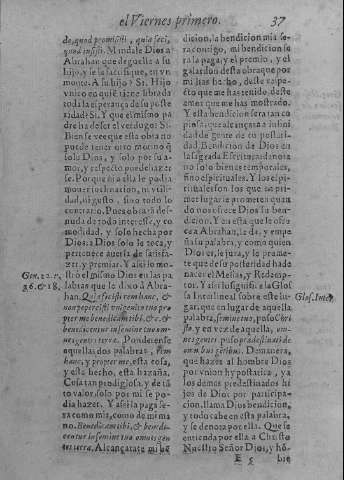 el Viernes primero. 37
do, quod promisisti, quia feci,
quod iussisti. Mandale Dios a
Abrahan que deguelle a su
hijo, y se la sacrifique, en un
monte. A su hijo? Si. Hijo
vnico en quiē tiene librada
toda la esperança de su poste
ridad? Si. Y que el mismo pa
dre ha de ser el verdugo? Si.
Bien se vee que esta obra no
puede tener otro motiuo q̄
solo Dios, y solo por su a-
mor, y respecto puede hazer
se. Porque ni a ella le podia
mouer inclinacion, ni vtili-
dad, ni gusto, sino todo lo
contrario. Pues obra tā des-
nuda de todo interesse, y co
modidad, y solo hecha por
Dios, a Dios solo le toca, y
pertenece auerla de satisfa-
zer, y premiar. Y assi lo mos
trò el mismo Dios en las pa
labras que le dixo à Abra-
han. Quia fecisti rem hanc, &
non pepercisti vnigenito tuo pro
pter me benedicam tibi, &c. &
benedicentur in semine tuo om-
nes gentes terræ. Ponderense
aquellas dos palabras, rem
hanc, y propter me, esta cosa,
y este hecho, esta hazaña.
Cosa tan prodigiosa, y de tā
to valor, solo por mi se po-
dia hazer. Y assi la paga se-
ra como mia, como de mi ma
no. Benedicam tibi, & benedi-
centur in semine tuo omnes gen
tes terræ. Alcançarate mi bē
Gen. 22. n.
16. & 18.
dicion, la bendicion mia se-
ra contigo, mi bendicion se
ra la paga, y el premio, y el
galardon desta obra que por
mi has hecho, deste respe-
cto que me has tenido, deste
amor que me has mostrado.
Y esta bendicion sera tan co
piosa que alcançara a infini
dad de gente de tu posteri-
dad. Bendicion de Dios en
la sagrada Escritura denota
no solo bienes temporales,
sino espirituales. Y los espi-
rituales son los que en pri-
mer lugar se prometen quan
do nos ofrece Dios su ben-
dicion. Y en esta que le ofre
ce a Abrahan, le da, y empe
ña su palabra, y como quien
Dios es, le jura, y le prome-
te que de su posteridad hade
nacer el Mesias, y Redemp-
tor. Y assi lo significa la Glos
sa Interlineal sobre este lu-
gar, que en lugar de aquella
palabra, semine tuo, puso Chri-
sto, y en vez de aquella, om-
nes gentes puso prædestinati de
omnibus gentibus. De manera,
que hazer al hombre Dios
por vnion hypostatica, y a
los demas predestinados hi
jos de Dios por participa-
cion, llama Dios bendicion,
y todo cabe en esta palabra,
y se denota por ella. Que se
entienda por ella a Christo
Nuestro Señor Dios, y hō-
Glos. Inter.
E 5 bre